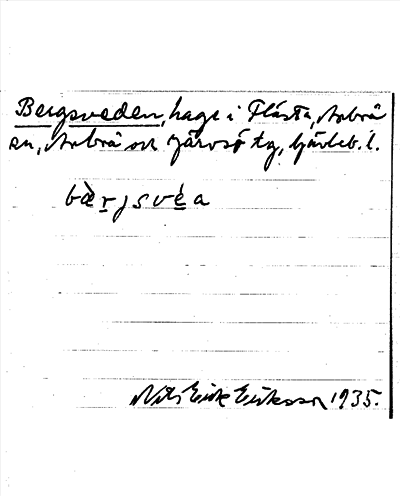 Bergsveden, hage i Flästa, Arbrå
sn, Arbrå och Järvsö tg, Gävleb. l.
bæ̀rjsvéa
Nils Erik Eriksson 1935.